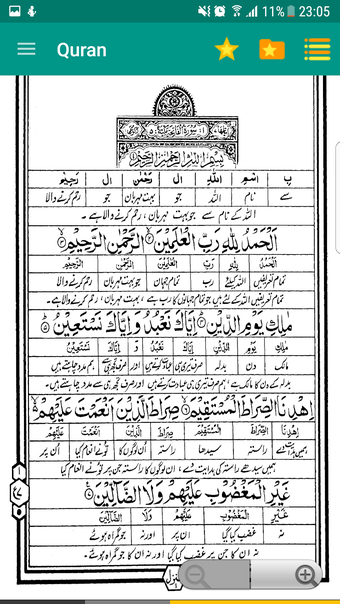 11% 23:05
Quran
بِسْمِ اللّٰهِ الرَّحْمٰنِ الرَّحِيْمِ
بِ اسْمِ اللّٰهِ ال رَحْمٰنِ ال رَحِيْمِ
سے نام اللہ جو بہت مہربان جو رحم کرنے والا
اللہ کے نام سے جو بہت مہربان، رحم کرنے والا ہے۔
اَلْحَمْدُ لِلّٰهِ رَبِّ الْعٰلَمِيْنَ الرَّحْمٰنِ الرَّحِيْمِ
اَلْحَمْدُ لِلّٰهِ رَبِّ الْعٰلَمِيْنَ الرَّحْمٰنِ الرَّحِيْمِ
تمام تعریفیں اللہ کیلئے رب تمام جہان جو بہت مہربان رحم کرنے والا
تمام تعریفیں اللہ کے لئے ہیں جو تمام جہانوں کا رب ہے، بہت مہربان، رحم کرنے والا ہے۔
مٰلِكِ يَوْمِ الدِّيْنِ اِيَّاكَ نَعْبُدُ وَاِيَّاكَ نَسْتَعِيْنُ
مٰلِكِ يَوْمِ الدِّيْنِ اِيَّاكَ نَعْبُدُ وَ اِيَّاكَ نَسْتَعِيْنُ
مالک دن بدلہ صرف تیری ہی ہم عبادت کرتے ہیں اور صرف تجھ ہی سے ہم مدد چاہتے ہیں
بدلہ کے دن کا مالک ہے، ہم صرف تیری ہی عبادت کرتے ہیں اور صرف تجھ ہی سے مدد چاہتے ہیں۔
اِهْدِنَا الصِّرَاطَ الْمُسْتَقِيْمَ صِرَاطَ الَّذِيْنَ اَنْعَمْتَ عَلَيْهِمْ
اِهْدِنَا الصِّرَاطَ الْمُسْتَقِيْمَ صِرَاطَ الَّذِيْنَ اَنْعَمْتَ عَلَيْهِمْ
ہمیں ہدایت دے راستہ سیدھا راستہ اُن لوگوں کا تو نے انعام کیا اُن پر
ہمیں سیدھے راستہ کی ہدایت دے، اُن لوگوں کا راستہ جن پر تو نے انعام کیا
غَيْرِ الْمَغْضُوْبِ عَلَيْهِمْ وَلَا الضَّآلِّيْنَ
غَيْرِ الْمَغْضُوْبِ عَلَيْهِمْ وَلَا الضَّآلِّيْنَ
نہ غضب کیا گیا ان پر اور نہ جو گمراہ ہوئے
نہ ان کا جن پر غضب کیا گیا اور نہ ان کا جو گمراہ ہوئے۔